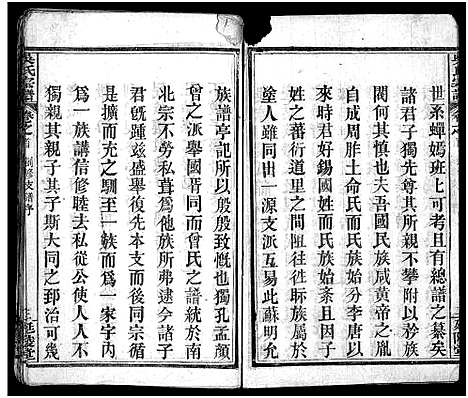 世系蟬嫣班上可考且有總譜之纂矣
諸君子獨先尊其所親不攀附不矜
閥何其慎也夫吾國民族咸黃帝之胤
自成周胙土命氏而民族始分李唐以
來時君好錫國姓而氏族始紊且干戈
之蕃衍道里之間阻往徃眎族屬於
塗人雖同出一源支派互易此蘇明允
族譜亭記所以殷殷致慨也獨孔孟顏
曾之派舉國晋同而曾氏之譜統於南
北宗不勞私葺爲他族所弗逮今諸子
君旣踵茲盛舉復先本支而後同宗循
是擴而充之馴至一族而爲一家宇内
爲一族講信修睦去私從公使人人不
獨親其親子其子斯大同之郅治可幾
吳氏宗譜
卷之首
創修支譜序
延陵堂
吳氏宗譜